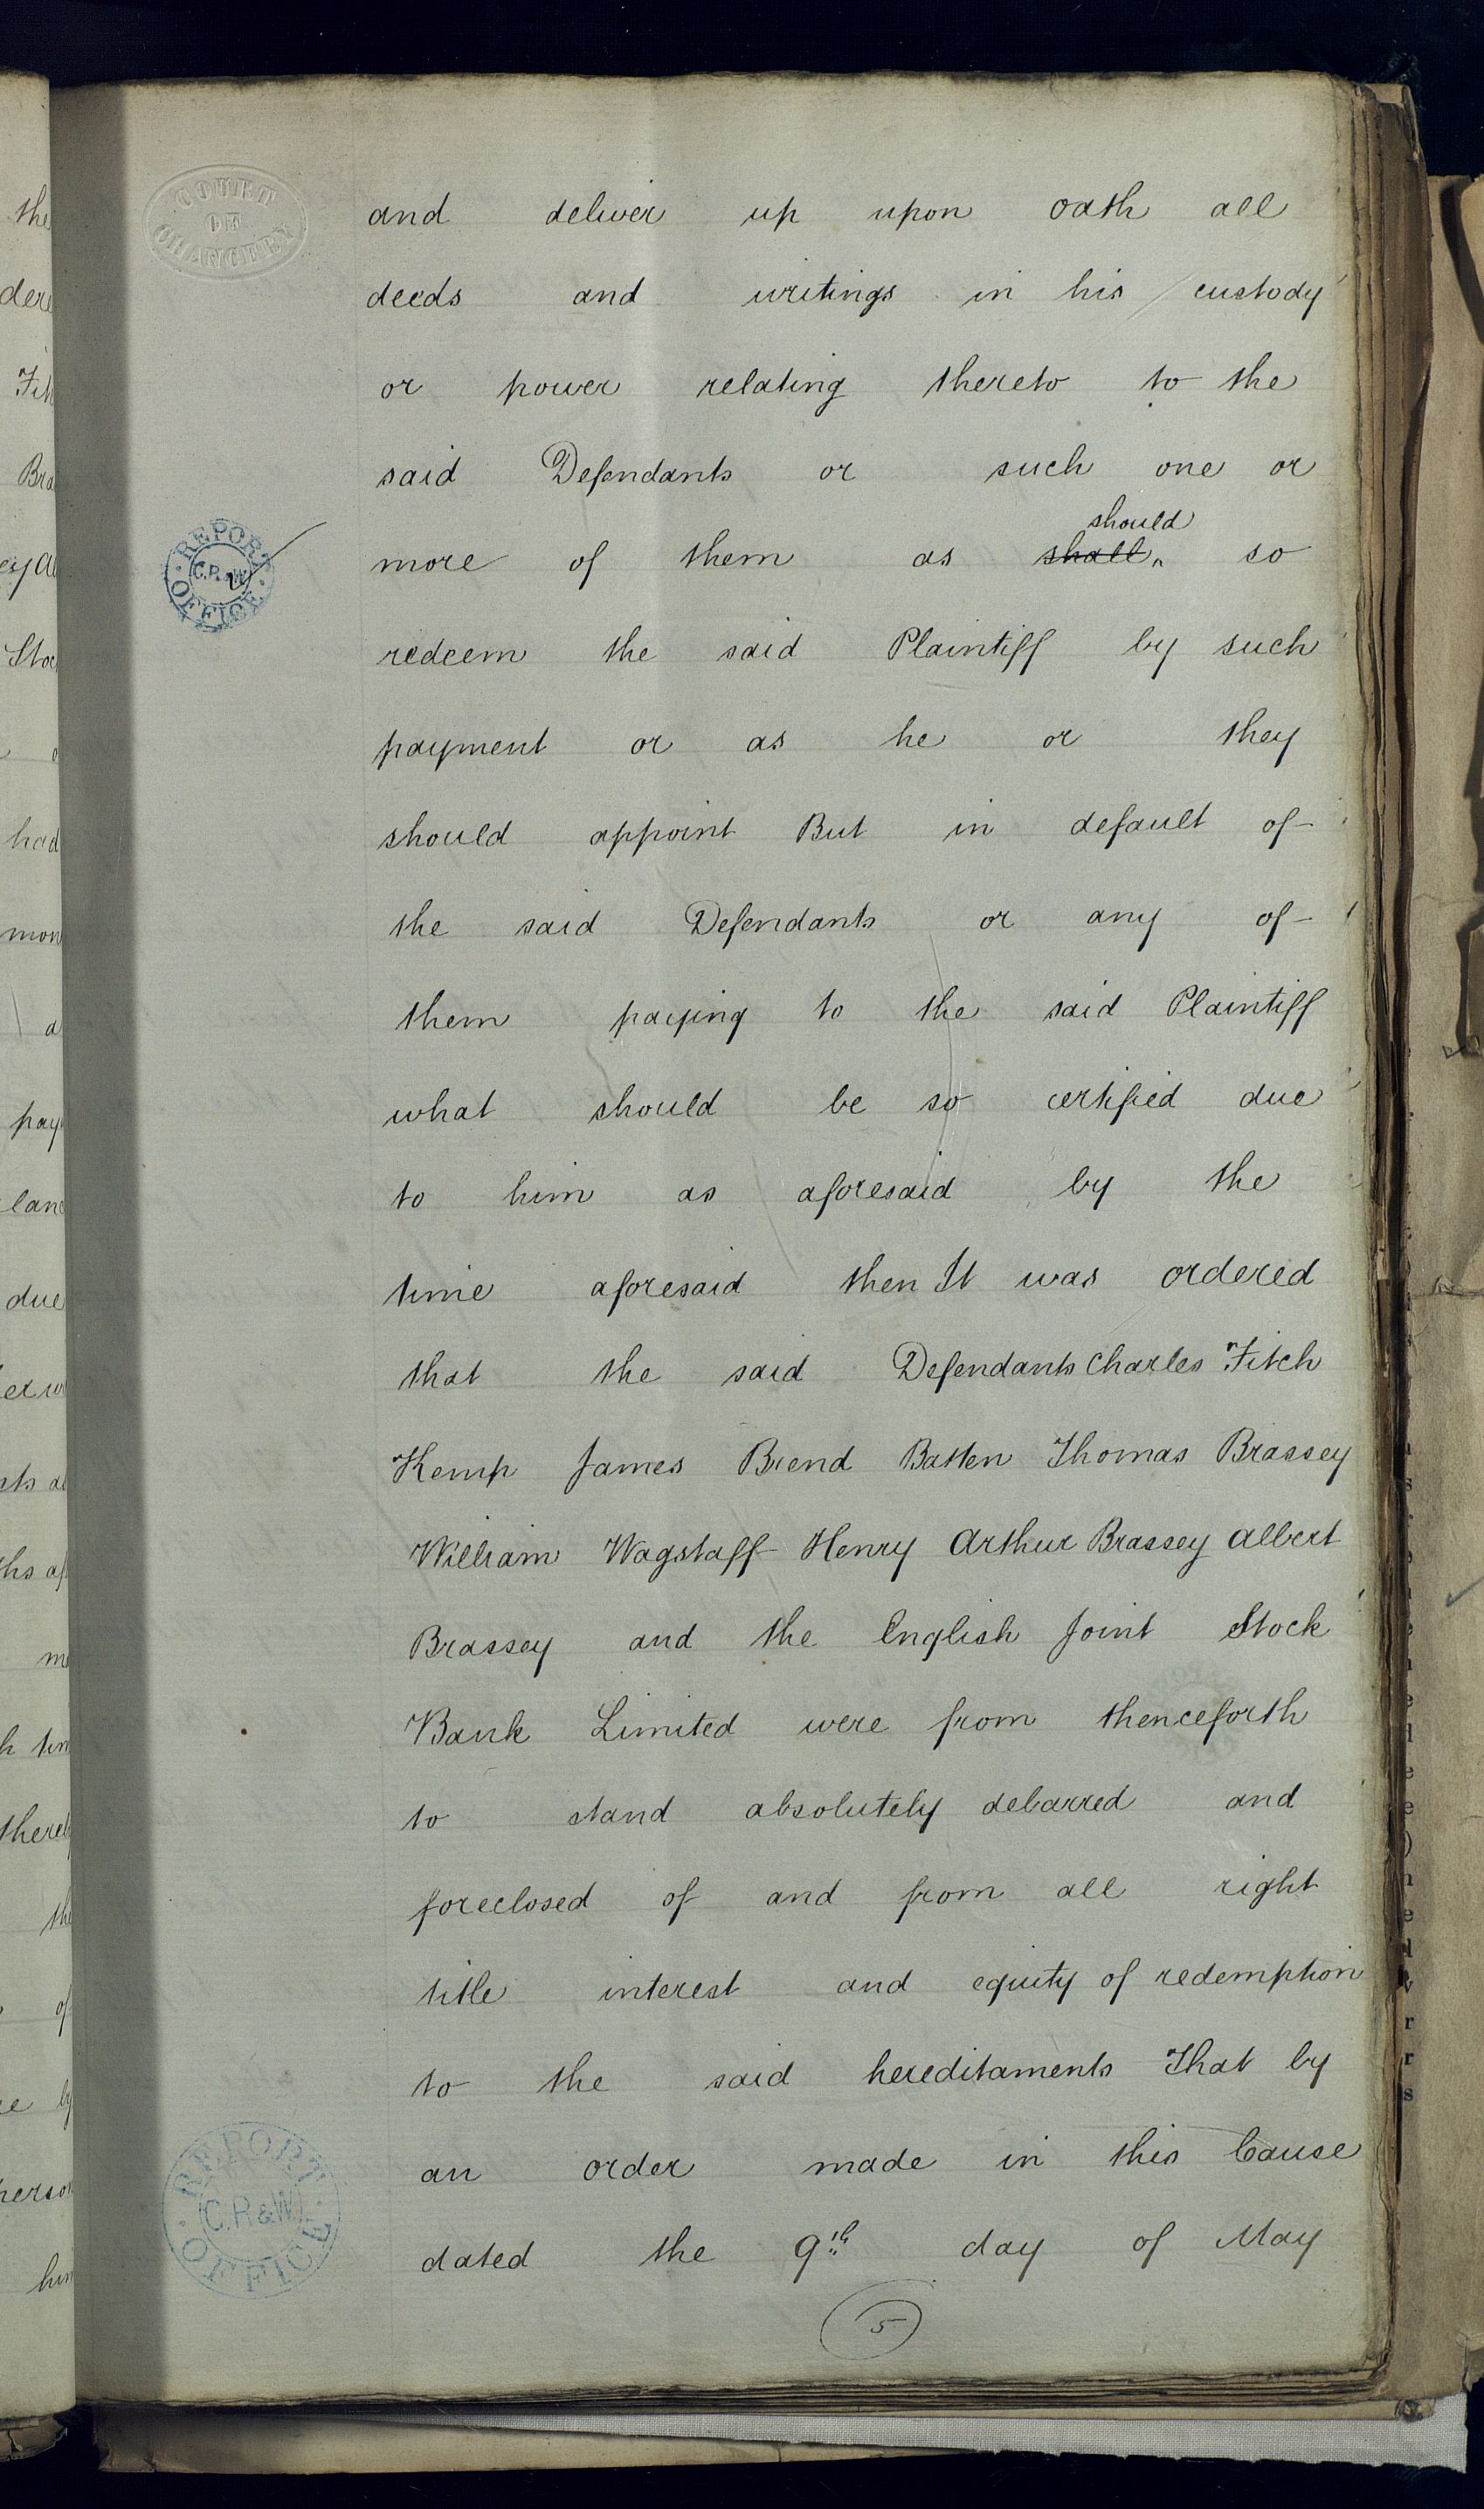 COURT OF CHANCERY
and deliver up upon oath all
deeds and writings in his custody
or power relating thereto to the
said Defendants or such one or
should
more of them as shall so
REPORT OFFICE C.R.&W.
redeem the said Plaintiff by such
payment or as he or they
should appoint But in default of
the said Defendants or any of
them paying to the said Plaintiff
what should be so certified due
to him as aforesaid by the
time aforesaid then It was ordered
that the said Defendants Charles Fitch
Kemp James Brend Batten Thomas Brassey
William Wagstaff Henry Arthur Brassey Albert
Brassey and the English Joint Stock
Bank Limited were from thenceforth
to stand absolutely debarred and
foreclosed of and from all right
title interest and equity of redemption
to the said hereditaments That by
an order made in this Cause
REPORT OFFICE C.R.&W.
dated the 9th day of May
5